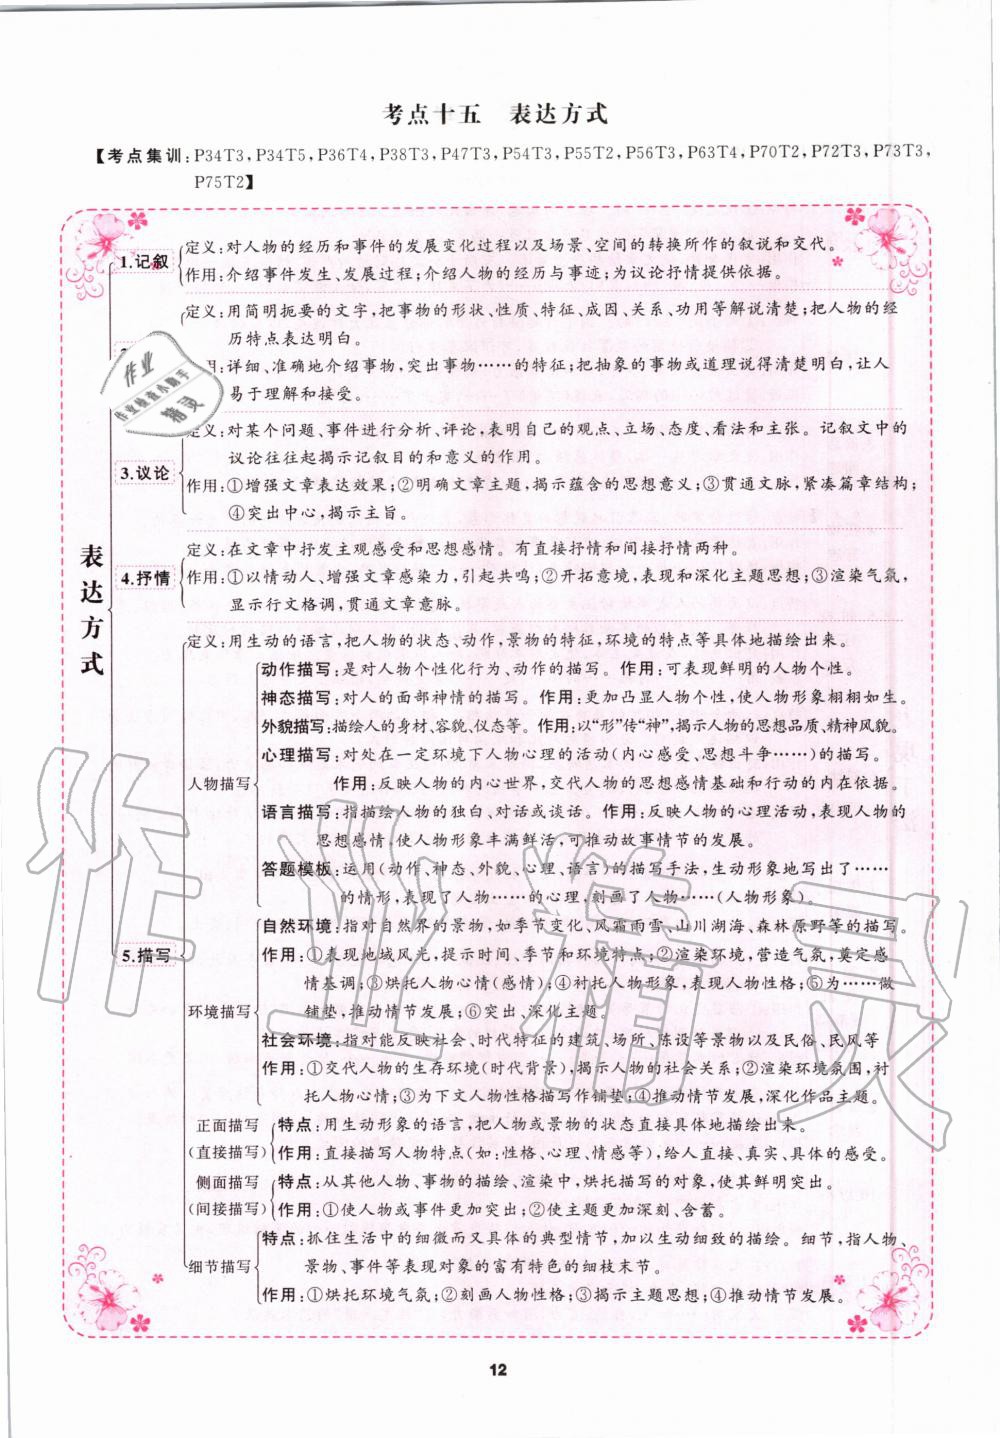 考点十五　表达方式
【考点集训:P34T3,P34T5,P36T4,P38T3,P47T3,P54T3,P55T2,P56T3,P63T4,P70T2,P72T3,P73T3,
P75T2】
表达方式
1.记叙
定义:对人物的经历和事件的发展变化过程以及场景、空间的转换所作的叙说和交代。
作用:介绍事件发生、发展过程;介绍人物的经历与事迹;为议论抒情提供依据。
定义:用简明扼要的文字,把事物的形状、性质、特征、成因、关系、功用等解说清楚;把人物的经
历特点表达明白。
用:详细、准确地介绍事物,突出事物……的特征;把抽象的事物或道理说得清楚明白,让人
易于理解和接受。
3.议论
定义:对某个问题、事件进行分析、评论,表明自己的观点、立场、态度、看法和主张。记叙文中的
议论往往起揭示记叙目的和意义的作用。
作用:①增强文章表达效果;②明确文章主题,揭示蕴含的思想意义;③贯通文脉,紧凑篇章结构;
④突出中心,揭示主旨。
4.抒情
定义:在文章中抒发主观感受和思想感情。有直接抒情和间接抒情两种。
作用:①以情动人、增强文章感染力,引起共鸣;②开拓意境,表现和深化主题思想;③渲染气氛,
显示行文格调,贯通文章意脉。
5.描写
定义:用生动的语言,把人物的状态、动作,景物的特征,环境的特点等具体地描绘出来。
人物描写
动作描写:是对人物个性化行为、动作的描写。作用:可表现鲜明的人物个性。
神态描写:对人的面部神情的描写。作用:更加凸显人物个性,使人物形象栩栩如生。
外貌描写:描绘人的身材、容貌、仪态等。作用:以“形”传“神”,揭示人物的思想品质、精神风貌。
心理描写:对处在一定环境下人物心理的活动(内心感受、思想斗争……)的描写。
作用:反映人物的内心世界,交代人物的思想感情基础和行动的内在依据。
语言描写:指描绘人物的独白、对话或谈话。作用:反映人物的心理活动,表现人物的
思想感情,使人物形象丰满鲜活,可推动故事情节的发展。
答题模板:运用(动作、神态、外貌、心理、语言)的描写手法,生动形象地写出了……
的情形,表现了人物……的心理,刻画了人物……(人物形象)。
环境描写
自然环境:指对自然界的景物,如季节变化、风霜雨雪、山川湖海、森林原野等的描写。
作用:①表现地域风光,提示时间、季节和环境特点;②渲染环境,营造气氛,奠定感
情基调;③烘托人物心情(感情);④衬托人物形象,表现人物性格;⑤为……做
铺垫,推动情节发展;⑥突出、深化主题。
社会环境:指对能反映社会、时代特征的建筑、场所、陈设等景物以及民俗、民风等
作用:①交代人物的生存环境(时代背景),揭示人物与社会的关系;②渲染环境氛围,衬
托人物心情;③为下文人物性格描写作铺垫;④推动情节发展,深化作品主题。
正面描写
(直接描写)
特点:用生动形象的语言,把人物或景物的状态直接具体地描绘出来。
作用:直接描写人物特点(如:性格、心理、情感等),给人直接、真实、具体的感受。
侧面描写
(间接描写)
特点:从其他人物、事物的描绘、渲染中,烘托描写的对象,使其鲜明突出。
作用:①使人物或事件更加突出;②使主题更加深刻、含蓄。
细节描写
特点:抓住生活中的细微而又具体的典型情节,加以生动细致的描绘。细节,指人物、
景物、事件等表现对象的富有特色的细枝末节。
作用:①烘托环境气氛;②刻画人物性格;③揭示主题思想;④推动情节发展。
12
作业
作业检查小助手
精灵
作业精灵